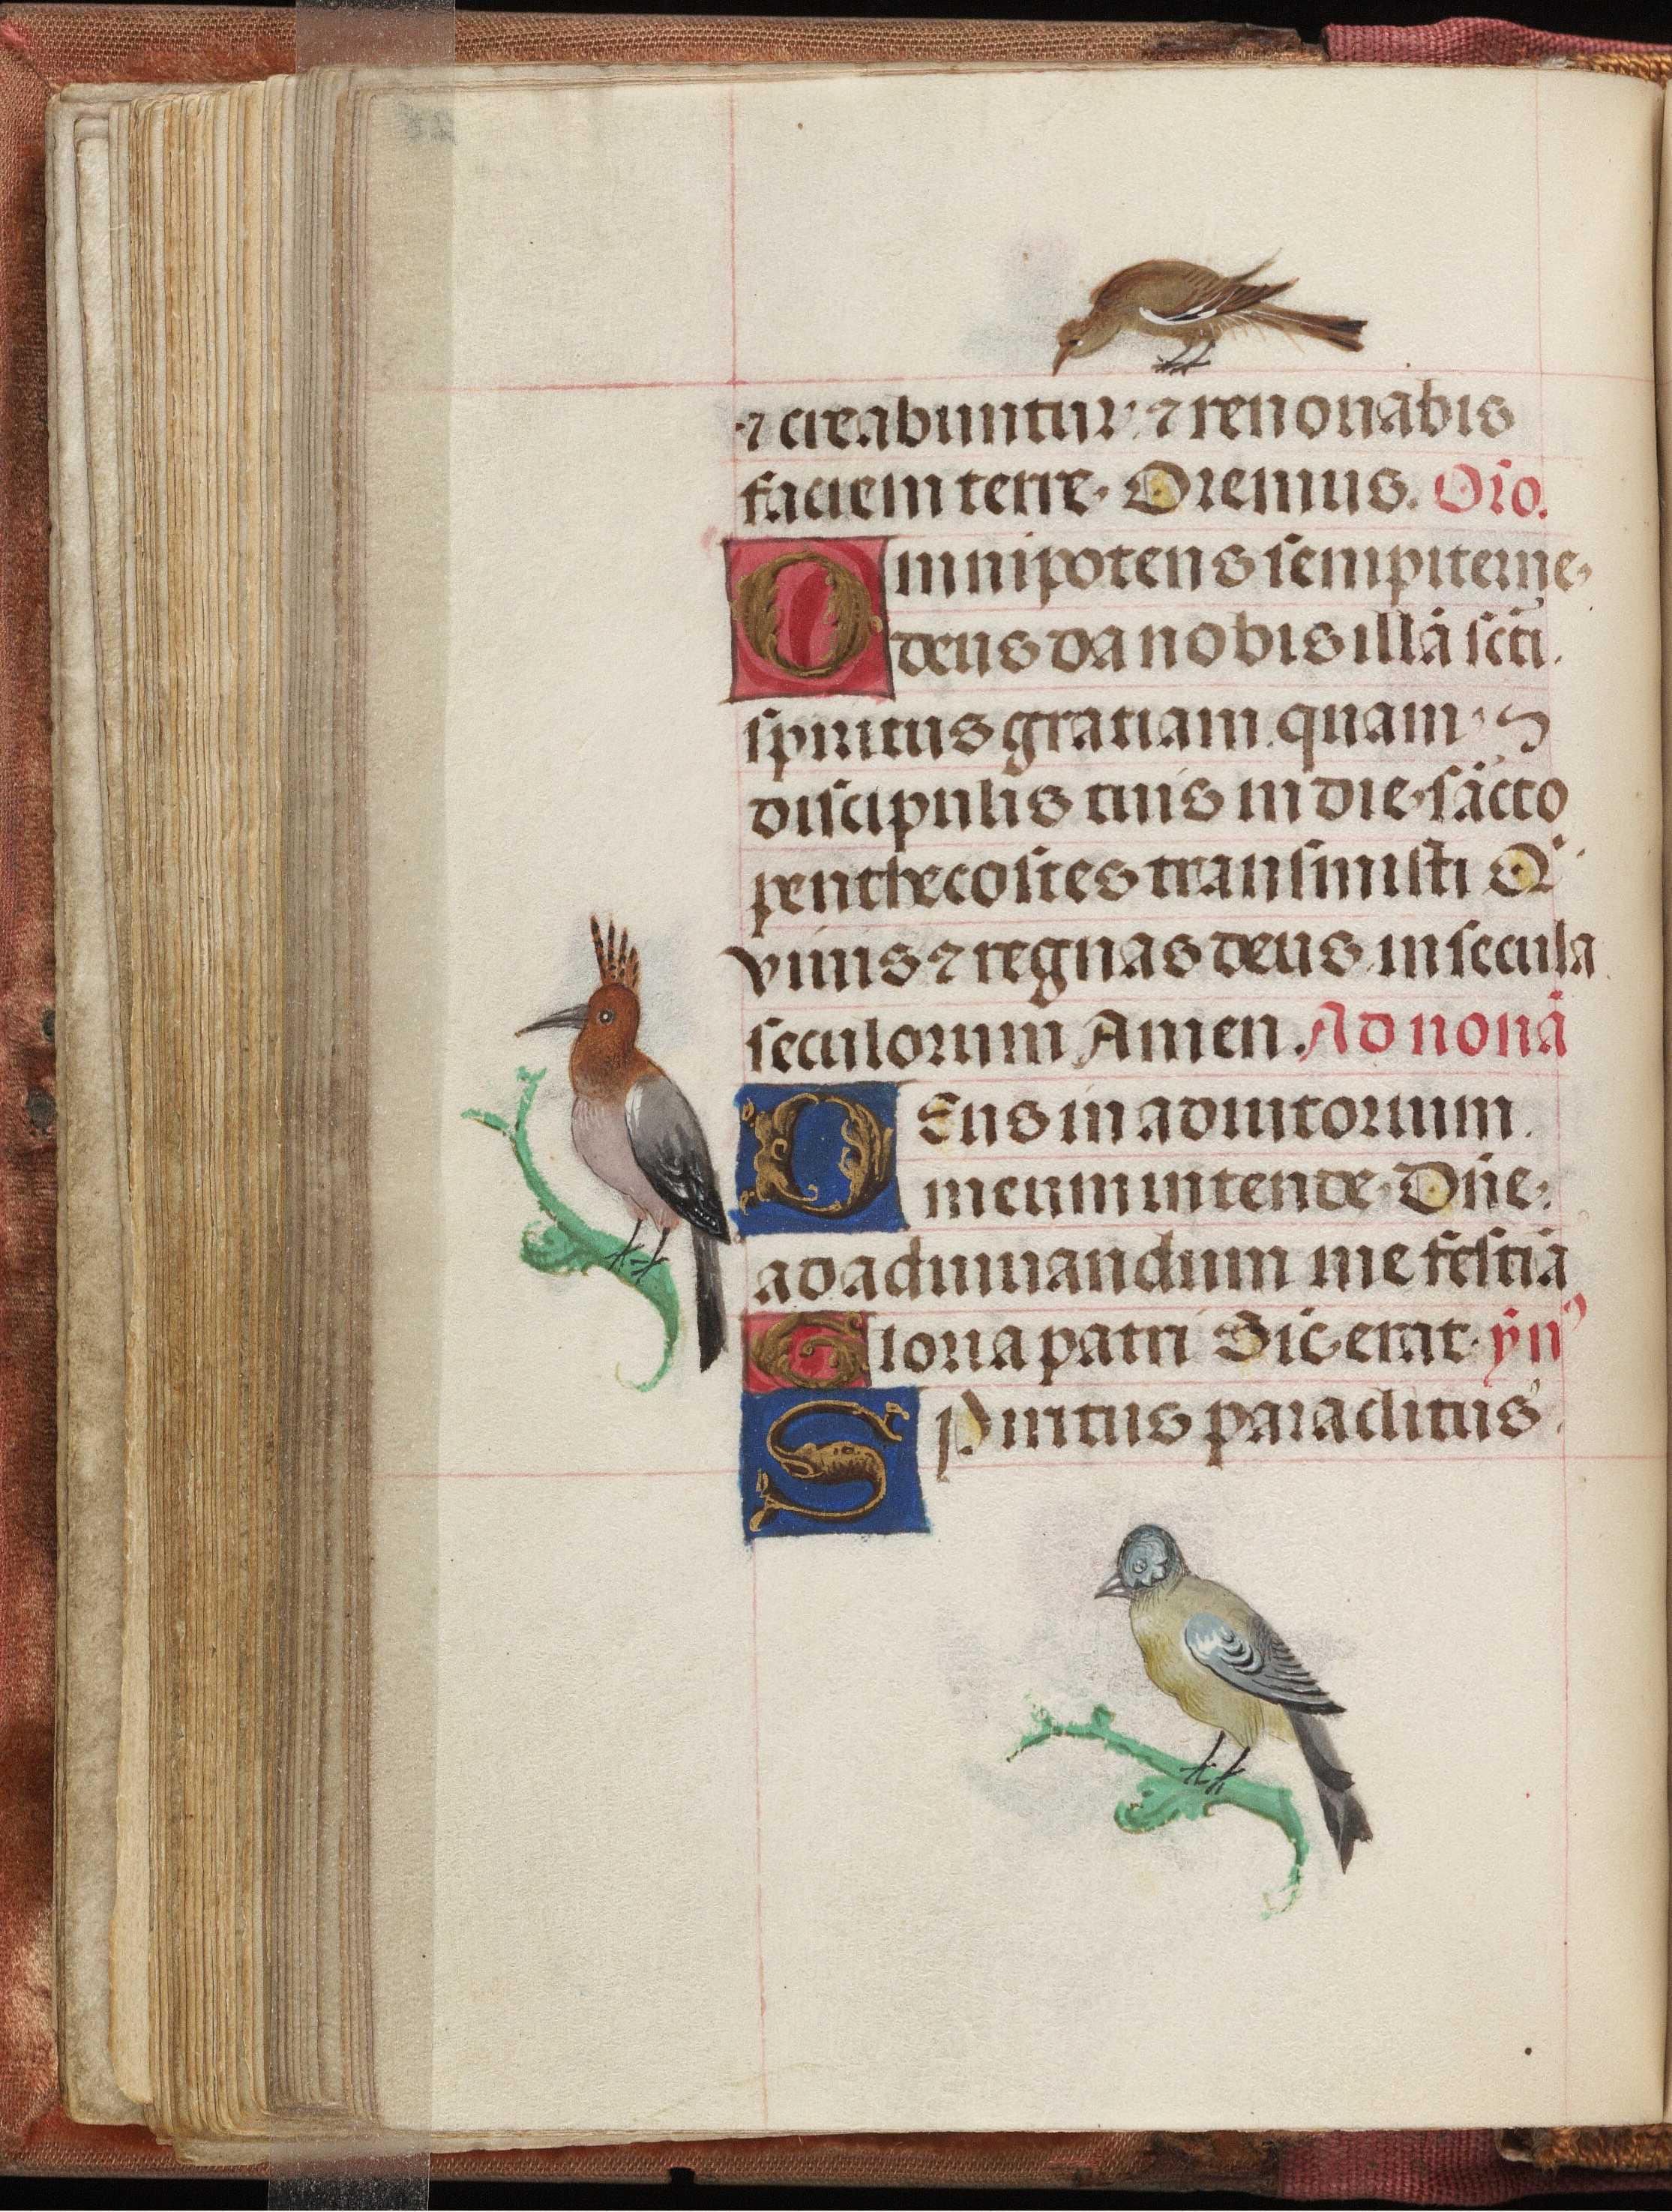 ⁊ creabuntur· ⁊ renouabis
faciem terre· Oremus. Oro.
Omnipotens sempiterne
deus da nobis illā sc̄ti
spiritus gratiam quam
discipulis tuis in die sācto
penthecostes transmisti Q'
viuis ⁊ regnas deus in secula
seculorum Amen. Ad nonā
DEus in adiutorium
meum intende· Dn̄e
ad adiuuandum me festiā
Gloria patri Sic erat· yn̄'
SPiritus paraclitus